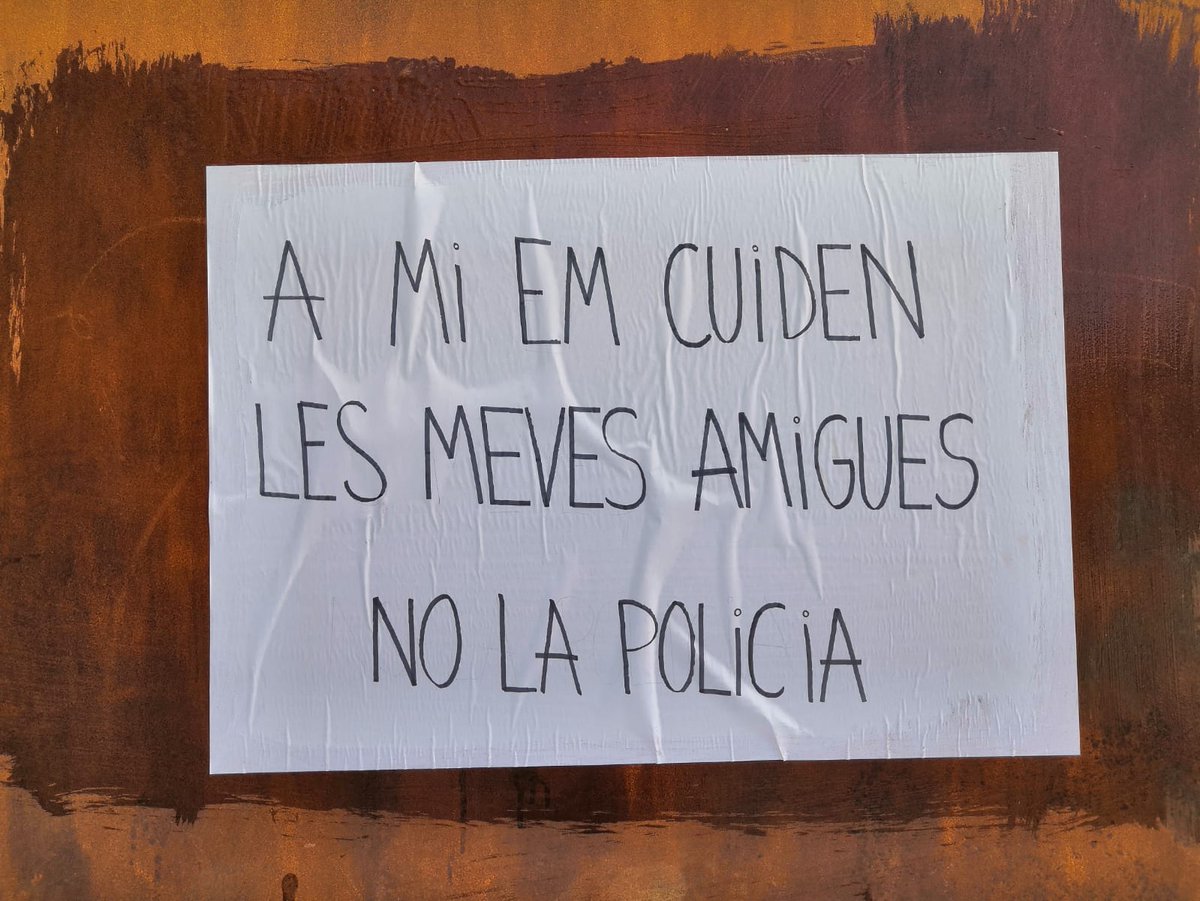 A Mi EM CUiDEN
LES MEVES AMiGUES
NO LA POLiCiA